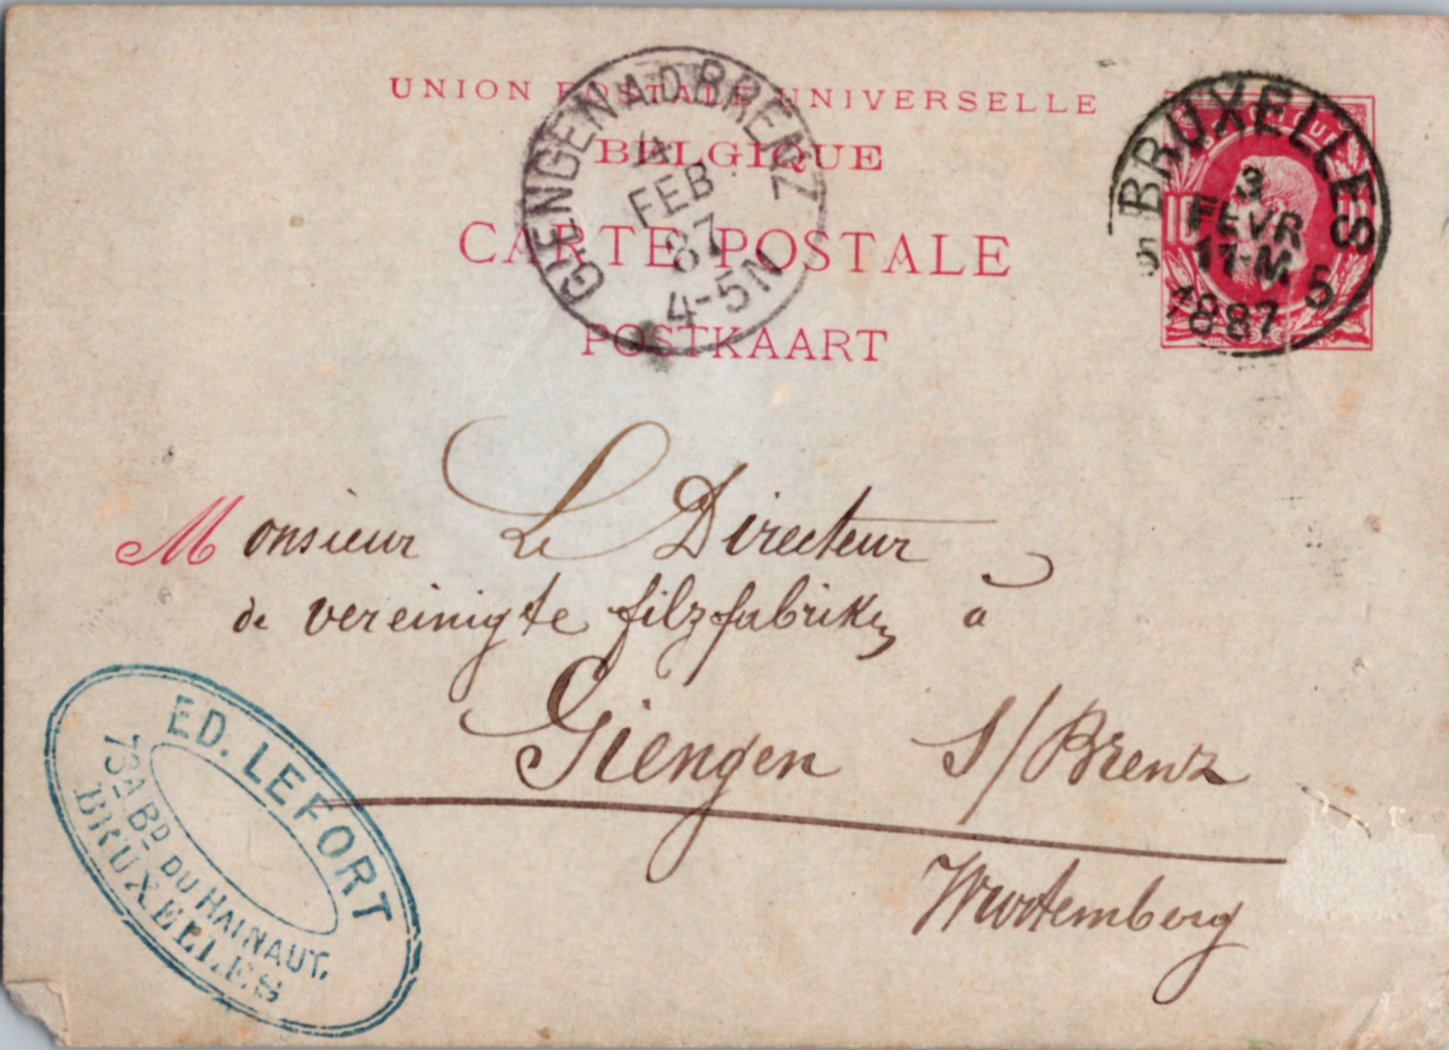 UNION POSTALE UNIVERSELLE
BELGIQUE
CARTE POSTALE
POSTKAART
GIENGEN A.D. BRENZ
4
FEB
87
4-5N
BRUXELLES
3
FEVR
11-M
5 5
1887
10
Monsieur Le Directeur
de vereinigte filzfabriken à
Giengen s/Brenz
Wurtemberg
ED. LEFORT
73A BD DU HAINAUT,
BRUXELLES